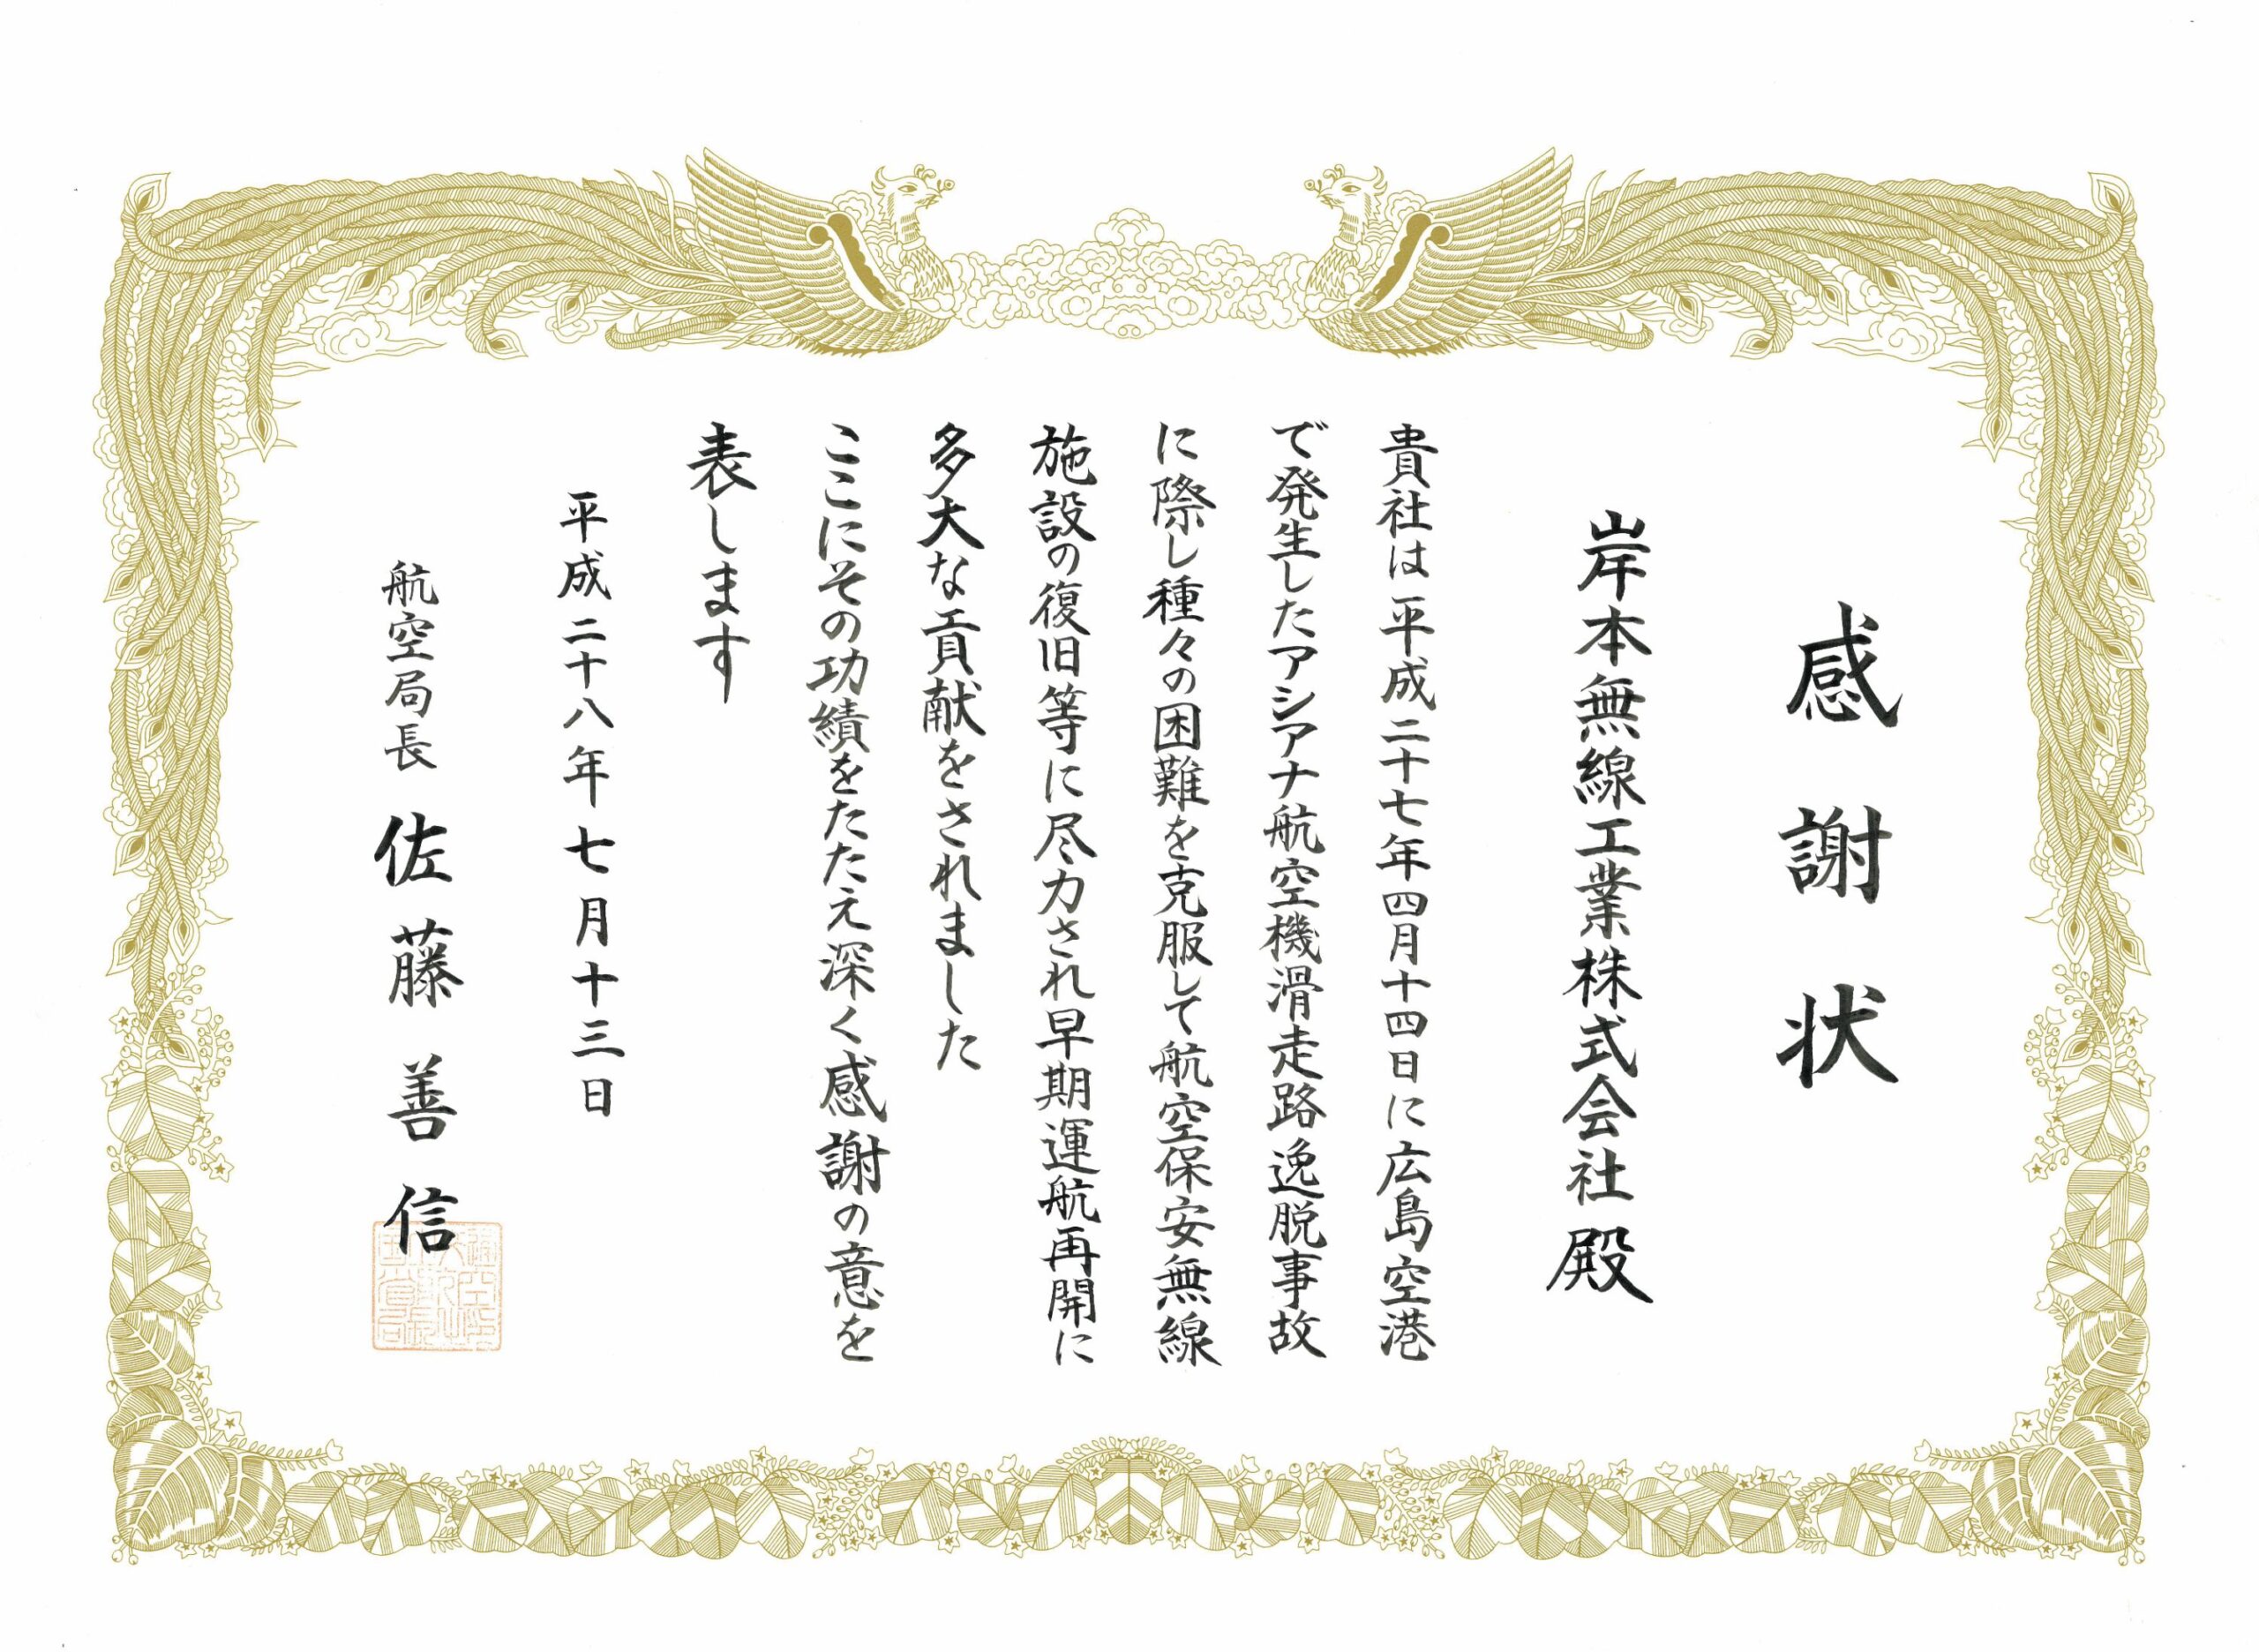 感謝状
岸本無線工業株式会社殿
貴社は平成二十七年四月十四日に広島空港
で発生したアシアナ航空機滑走路逸脱事故
に際し種々の困難を克服して航空保安無線
施設の復旧等に尽力され早期運航再開に
多大な貢献をされました
ここにその功績をたたえ深く感謝の意を
表します
平成二十八年七月十三日
航空局長 佐藤善信